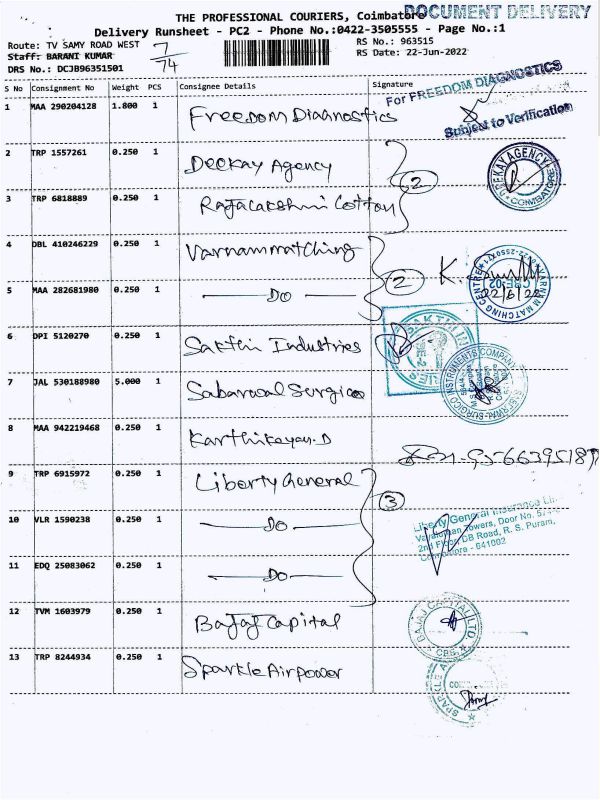 THE PROFESSIONAL COURIERS, Coimbatore
DOCUMENT DELIVERY
Delivery Runsheet - PC2 - Phone No.:0422-3505555 - Page No.:1
Route: TV SAMY ROAD WEST
7/74
RS No.: 963515
Staff: BARANI KUMAR
RS Date: 22-Jun-2022
DRS No.: DCJB96351501
S No Consignment No Weight PCS Consignee Details Signature
For FREEDOM DIAGNOSTICS
1 MAA 290204128 1.800 1 Freedom Diagnostics
Subject to Verification
2 TRP 1557261 0.250 1 Deekay Agency
2
DEEKAY AGENCY
COIMBATORE
3 TRP 6818889 0.250 1 Rajalakshmi Cotton
4 DBL 410246229 0.250 1 Varnammatching
2
K.
VARNAM MATCHING CENTRE
CBE-02
22/6/22
5 MAA 282681980 0.250 1 DO
6 DPI 5120270 0.250 1 Sakthi Industries
7 JAL 530188980 5.000 1 Sabarwal Surgico
SURGICO INSTRUMENTS COMPANY
8 MAA 942219468 0.250 1 Karthikeyan.D
9 TRP 6915972 0.250 1 Liberty General
3
10 VLR 1590238 0.250 1 DO
Liberty General Insurance
Towers, Door No.
2nd Floor, DB Road, R. S. Puram,
Coimbatore - 641002
11 EDQ 25083062 0.250 1 DO
12 TVM 1603979 0.250 1 Bajaj Capital
BAJAJ CAPITAL LTD
CBE
13 TRP 8244934 0.250 1 Sparkle Airpower